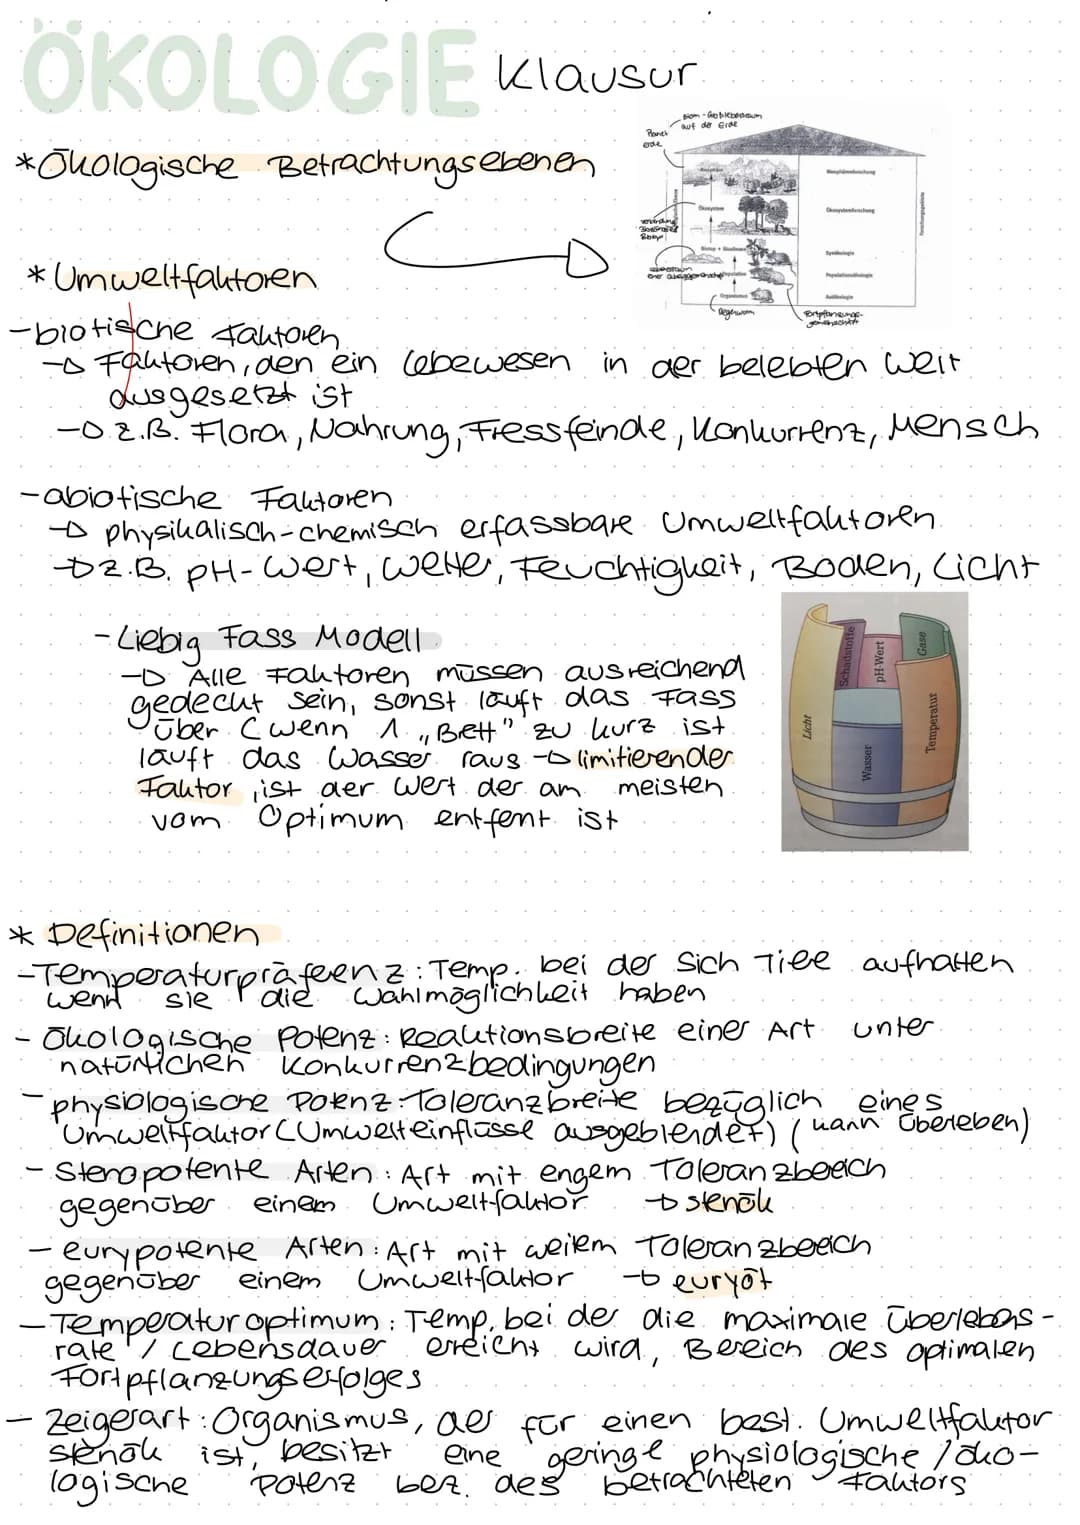 ÖKOLOGIE Klausur
*Ökologische Betrachtungsebenen
Biom - Großlebensraum
auf der Erde
Planet
erde
Biosphäre
Biosphärenforschung
Ökosystem
Ökosystemforschung
Biotop +
Synökologie
Population
Populationsökologie
Organismus
Autökologie
Fortpflanzungs-
gemeinschaft
* Umweltfaktoren
-biotische Faktoren
→ Faktoren, den ein Lebewesen in der belebten Welt
ausgesetzt ist
→ z.B. Flora, Nahrung, Fressfeinde, Konkurrenz, Mensch
-abiotische Faktoren
→ physikalisch-chemisch erfassbare Umweltfaktoren
→ z.B. pH-Wert, Wetter, Feuchtigkeit, Boden, Licht
- Liebig Fass Modell
→ Alle Faktoren müssen ausreichend
gedeckt sein, sonst läuft das Fass
über (wenn 1 „Brett" zu kurz ist
läuft das Wasser raus → limitierender
Faktor, ist der Wert der am meisten
vom Optimum entfernt ist
Licht
Schadstoffe
pH-Wert
Gase
Wasser
Temperatur
* Definitionen
-Temperaturpräfeenz: Temp. bei der sich Tiee aufhalten
wenn sie die Wahlmöglichkeit haben
- Ökologische Potenz: Reaktionsbreite einer Art unter
natürlichen Konkurrenzbedingungen
- physiologische Potenz: Toleranzbreite bezüglich eines
Umweltfaktor (Umwelteinflüsse ausgeblendet) (kann überleben)
- Stenopotente Arten: Art mit engem Toleranzbereich
gegenüber einem Umweltfaktor → stenök
- eurypotente Arten: Art mit weitem Toleranzbereich
gegenüber einem Umweltfaktor → euryöt
- Temperaturoptimum: Temp. bei der die maximale Überlebens-
rate / Lebensdauer erreicht wird, Bereich des optimalen
Fortpflanzungserfolges
- Zeigerart: Organismus, der für einen best. Umweltfaktor
stenök ist, besitzt eine geringe physiologische / öko-
logische Potenz bez. des betrachteten Faktors